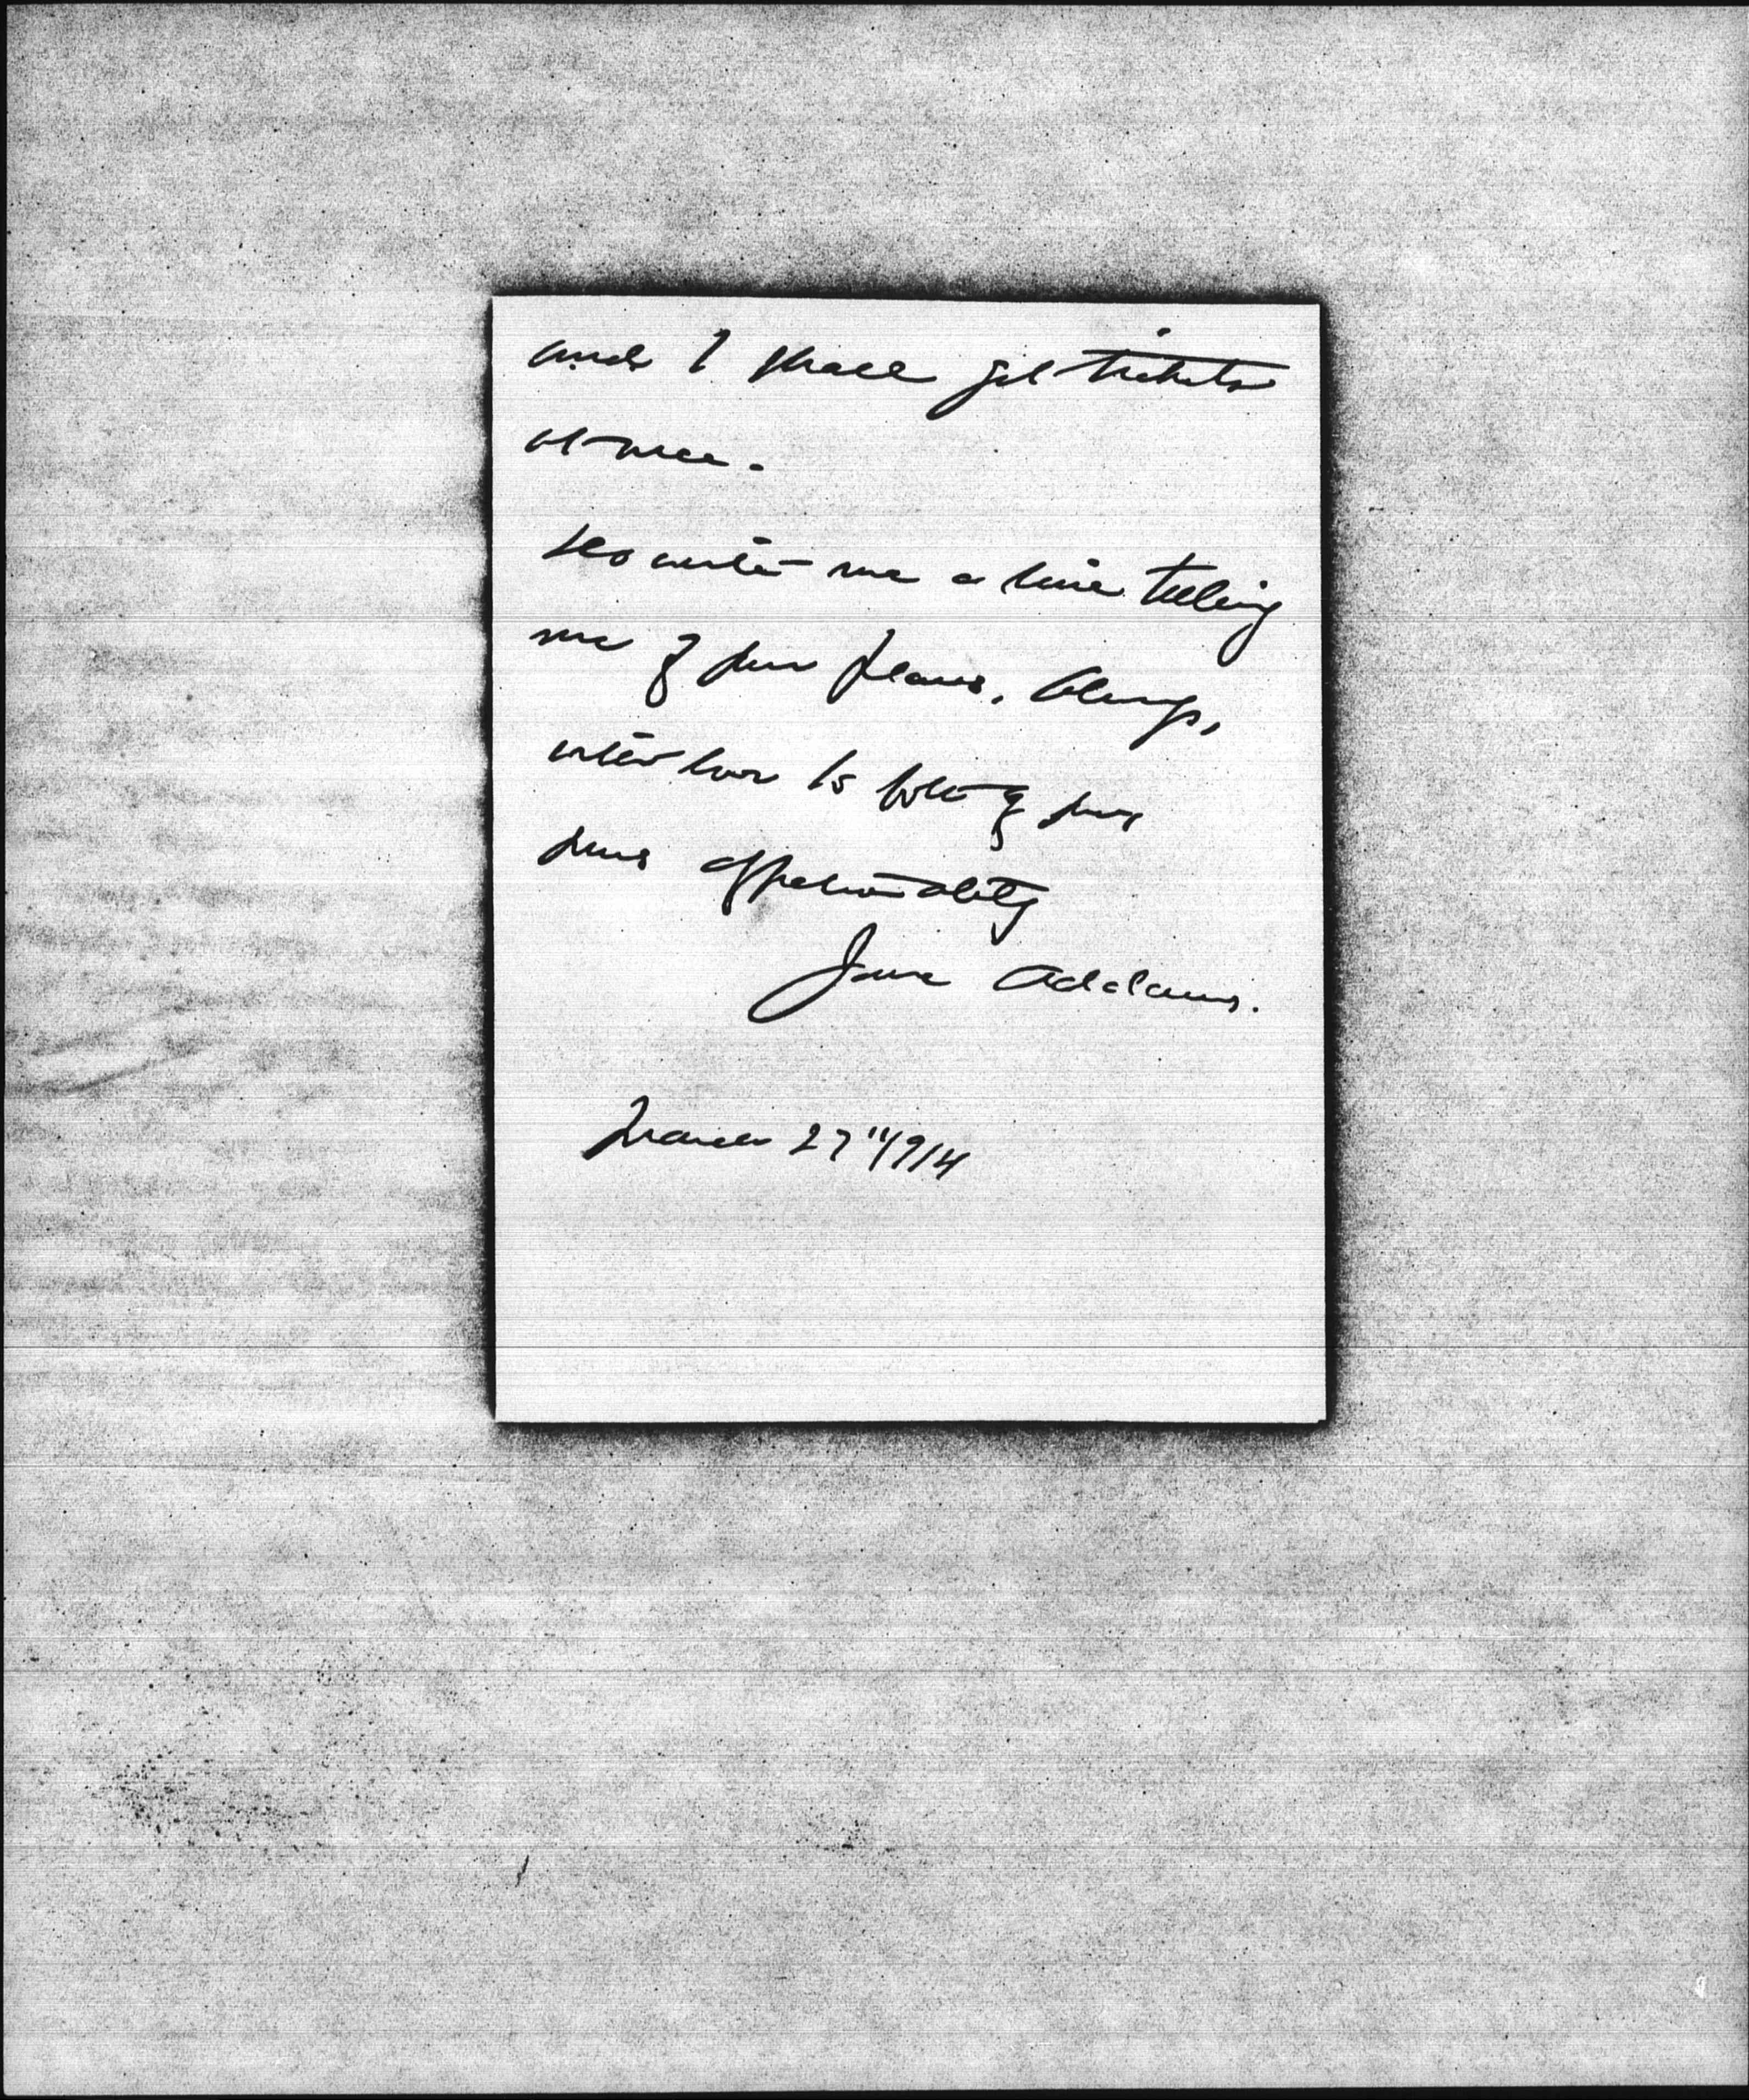 and I shall get tickets
at once.
Do write me a line telling
me of your plans. Always,
with love to both of you
yours affectionately
Jane Addams.
March 27" 1914